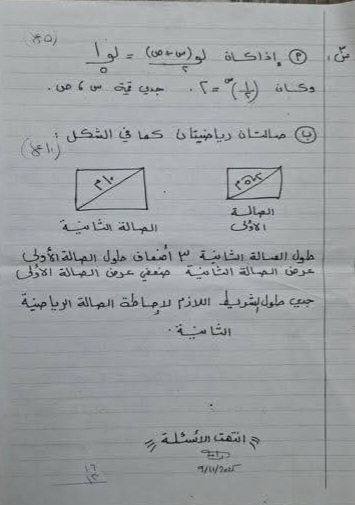 (٥ع)
س٣: (٩) إذا كان لو (س + ص) / ٢ = لو ١ / ٥
وكان (١/٢)^س = ٢٠ جدي قيمة س ، ص .
(ب) صالتان رياضيتان كما في الشكل :
(١٠ع)
١٠م
الصالة الثانية
الصالة الأولى
طول الصالة الثانية ٣ أضعاف طول الصالة الأولى
عرض الصالة الثانية ضعفي عرض الصالة الأولى
جدي طول الشريط اللازم لإحاطة الصالة الرياضية
الثانية .
انتهت الأسئلة